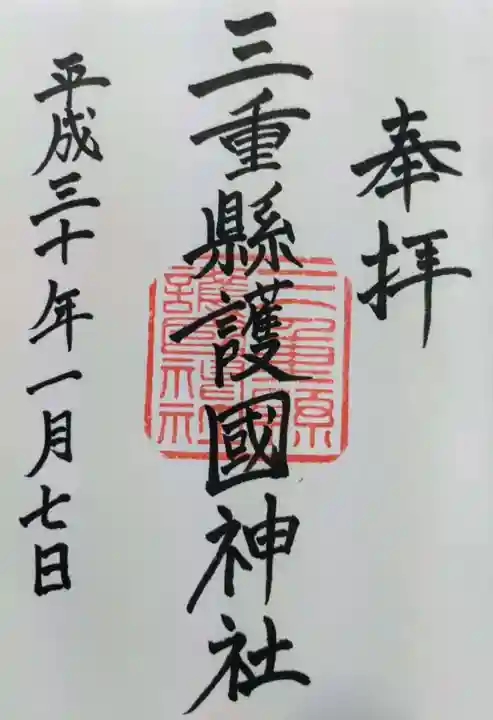 奉拝
三重縣護國神社
平成三十年一月七日
三重県
護国神社